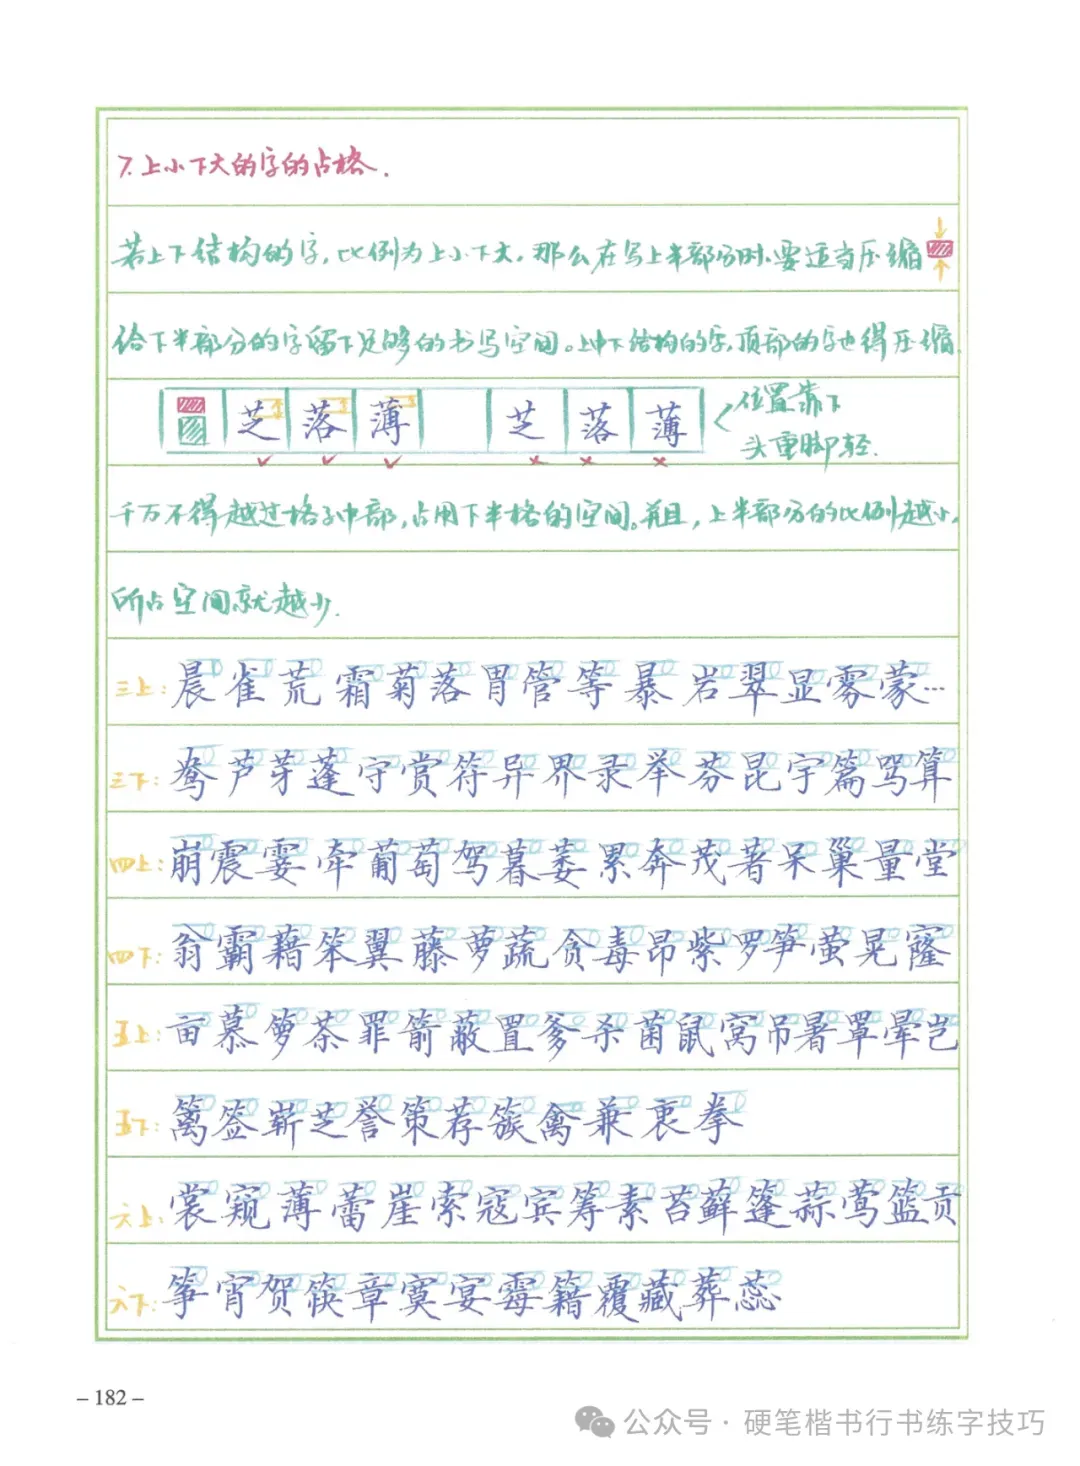 7.上小下大的字的占格.
若上下结构的字,比例为上小下大,那么在写上半部分时,要适当压缩
给下半部分的字留下足够的书写空间。上中下结构的字,顶部的字也得压缩.
芝 落 薄 芝 落 薄 位置靠下
头重脚轻.
千万不得越过格子中部,占用下半格的空间。并且,上半部分的比例越小,
所占空间就越少.
三上:晨雀荒霜菊落胃管等暴岩翠显雾蒙…
三下:鸯芦芽蓬守赏符异界录举芬昆宇篇骂算
四上:崩震霎牵葡萄驾暮萎累奔茂著呆巢量堂
四下:翁霸藉笨翼藤萝蔬贪毒昂紫罗笋萤晃窿
五上:亩慕箩荼罪箭蔽置爹杀菌鼠窝吊暑罩晕岂
五下:篱签崭芝誉策荐簇禽兼衷拳
六上:裳窥薄蕾崖索寇宾筹素苔藓篷蒜莺篮贡
六下:筝宵贺筷章寞宴霉籍覆藏葬蕊
-182-
公众号·硬笔楷书行书练字技巧